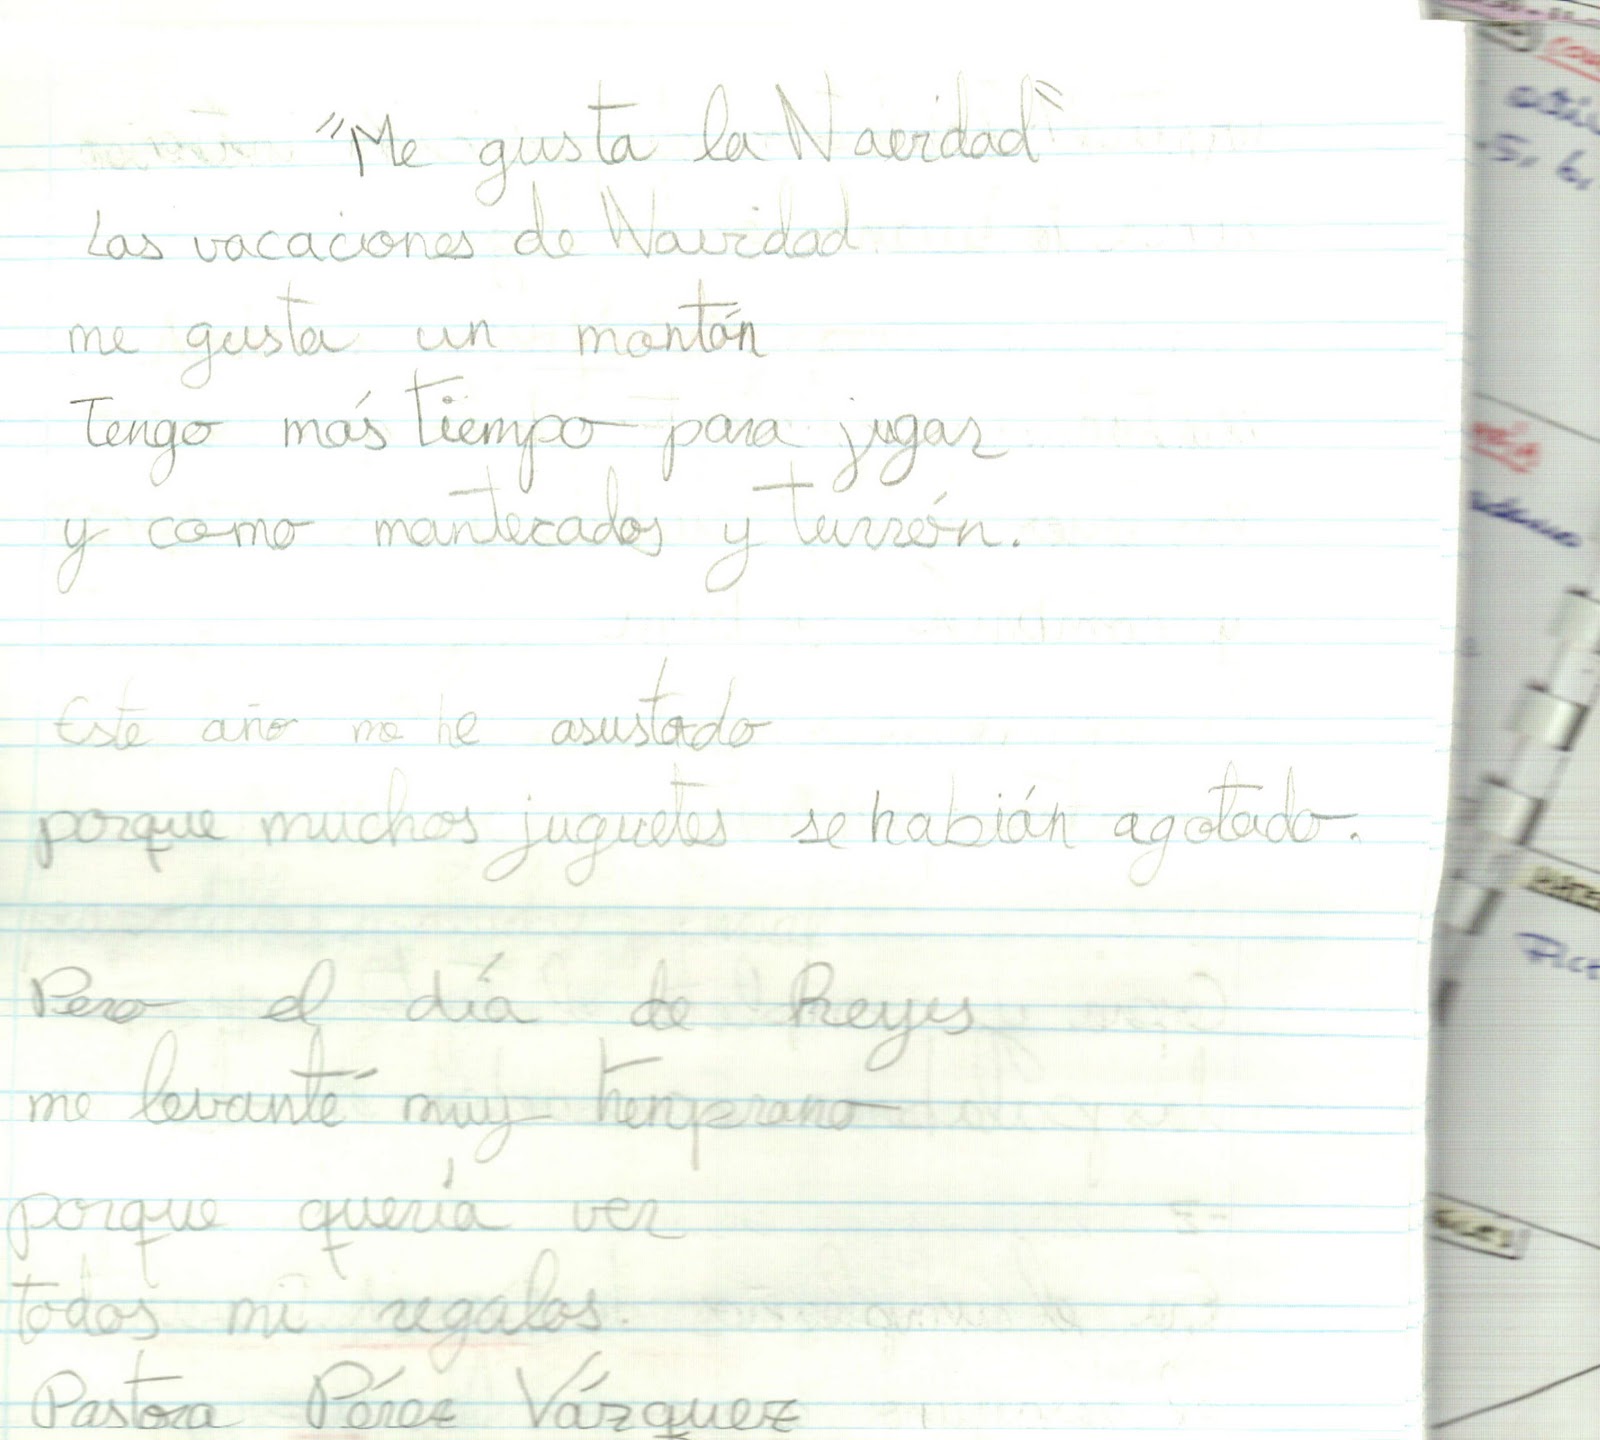 "Me gusta la Navidad"
Las vacaciones de Navidad
me gusta un montón
Tengo más tiempo para jugar
y como mantecados y turrón.
Este año me he asustado
porque muchos juguetes se habián agotado.
Pero el día de Reyes
me levanté muy temprano
porque quería ver
todos mi regalos.
Pastora Pérez Vázquez
5, 6,